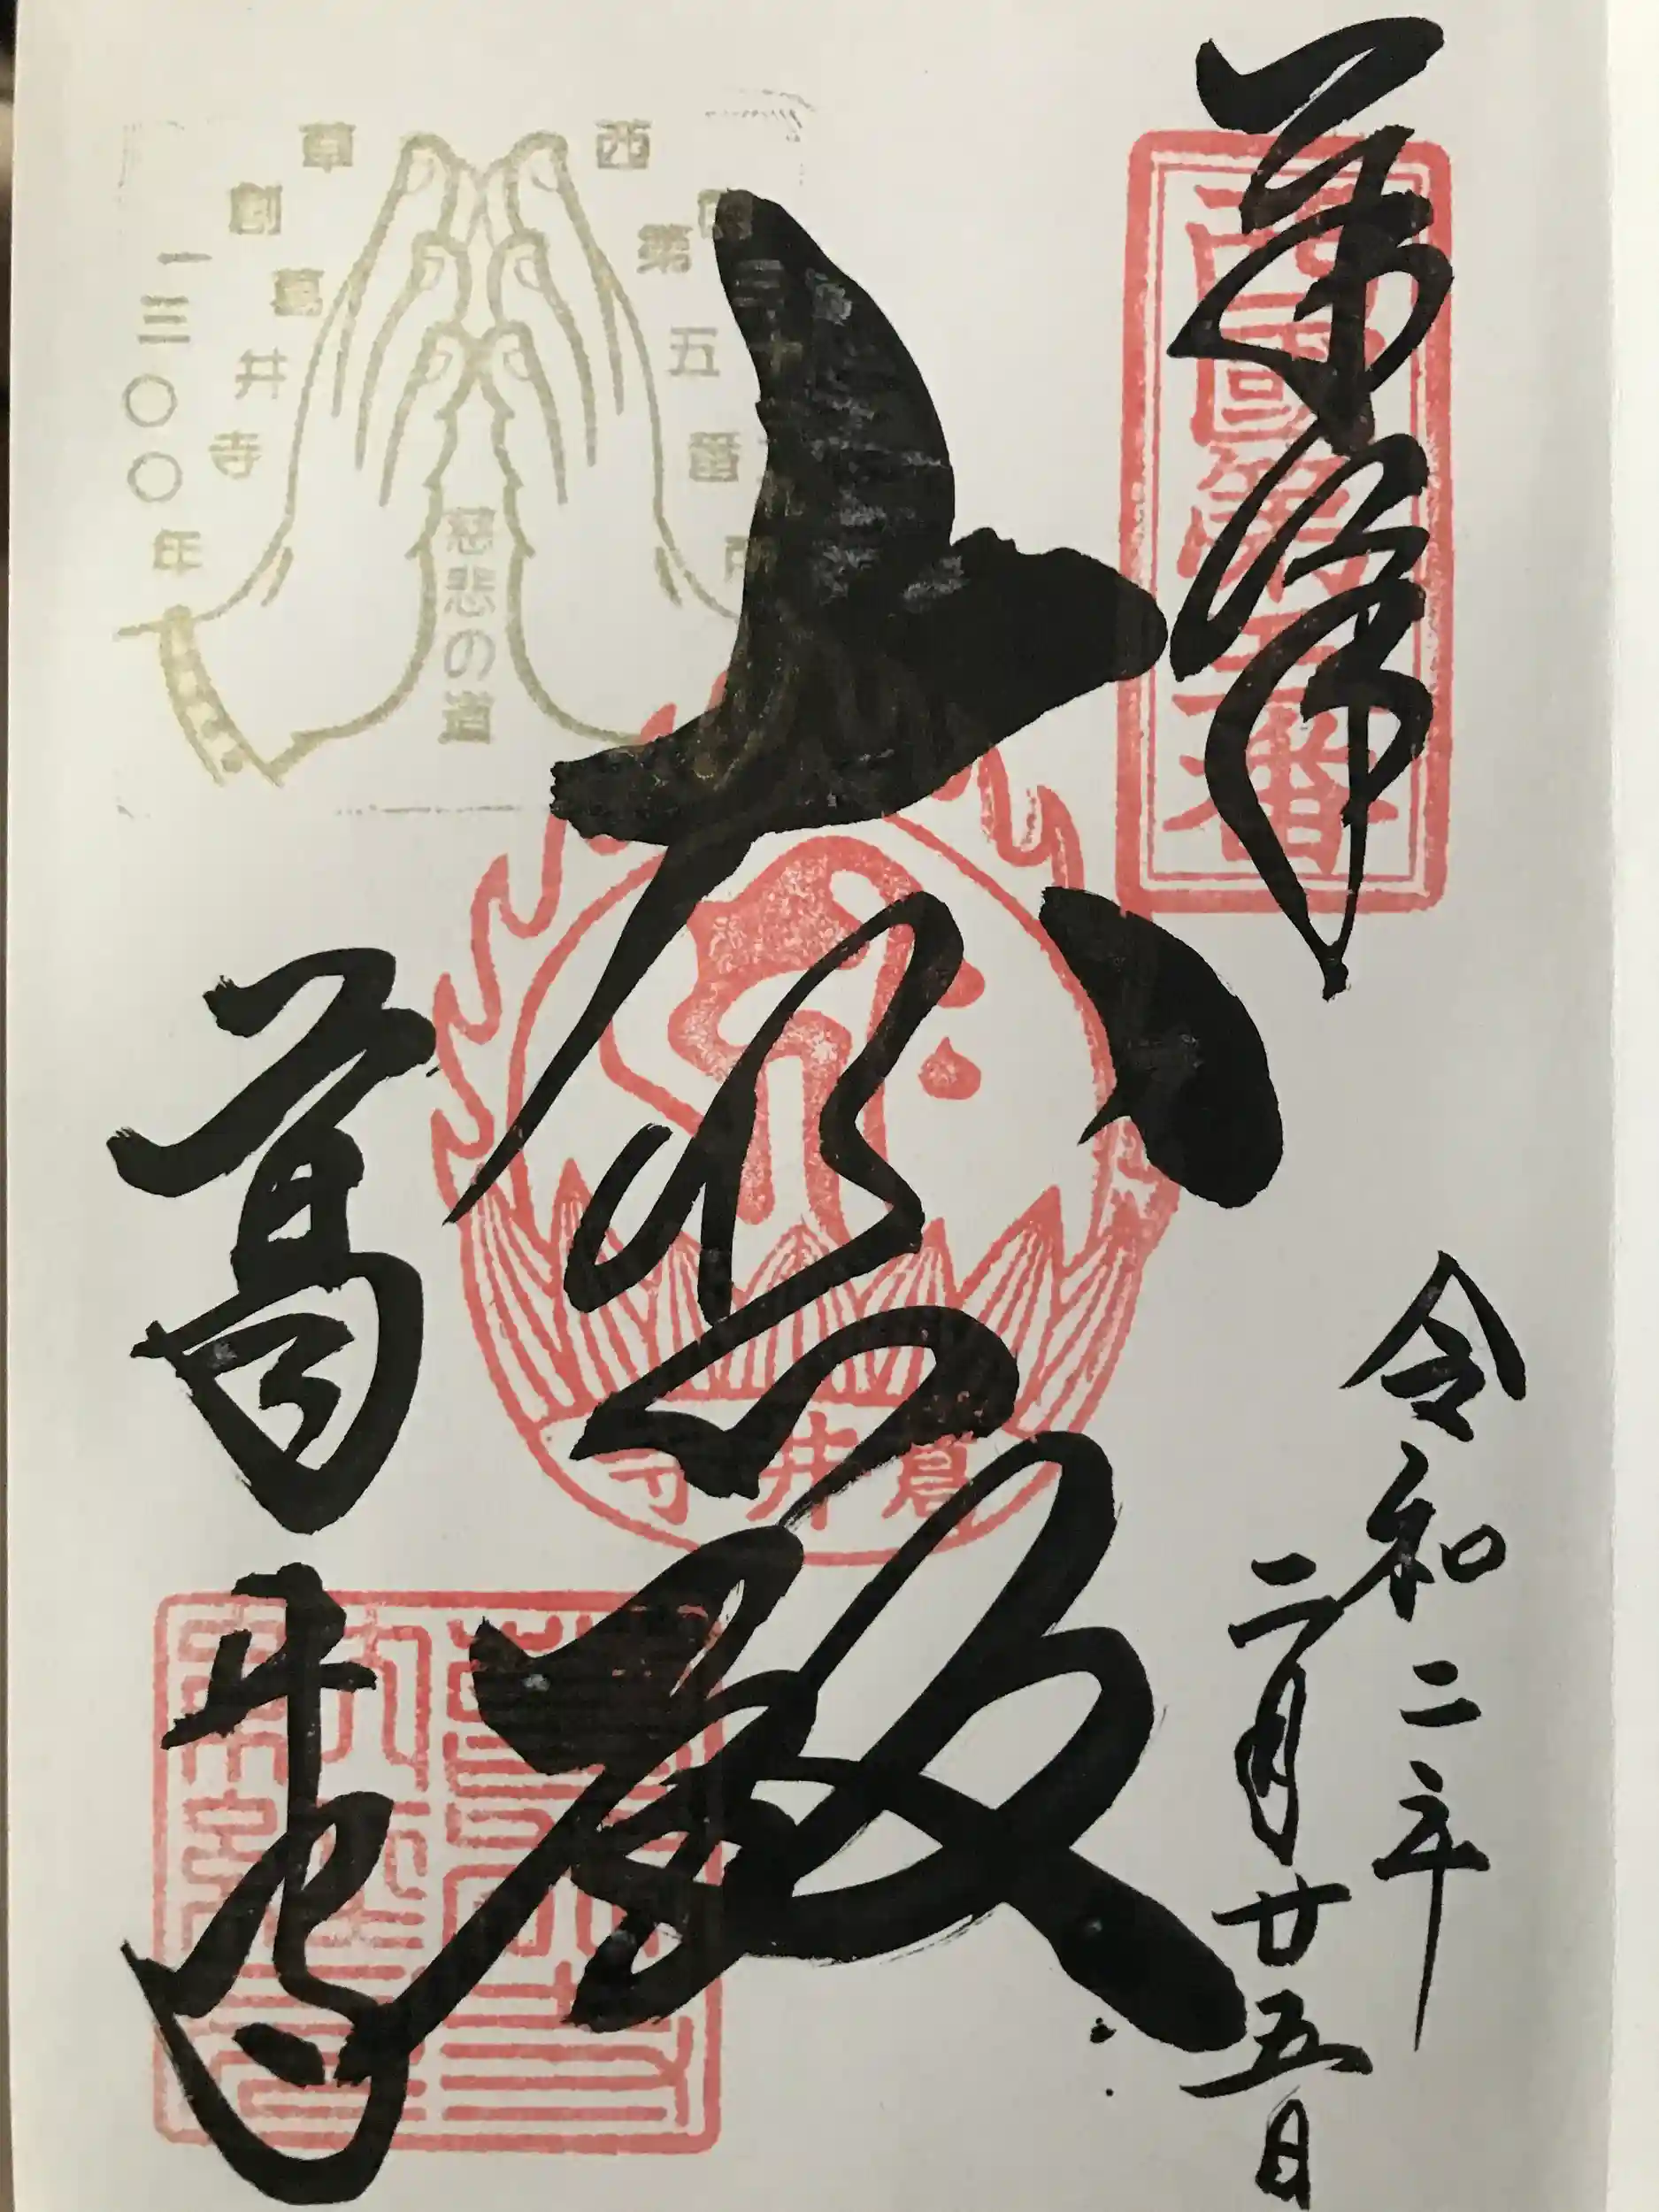 奉拝
西國第五番
令和二年
二月廿五日
大悲殿
葛井寺
葛井寺
西国三十三所
草創一三〇〇年
第五番
葛井寺
慈悲の道